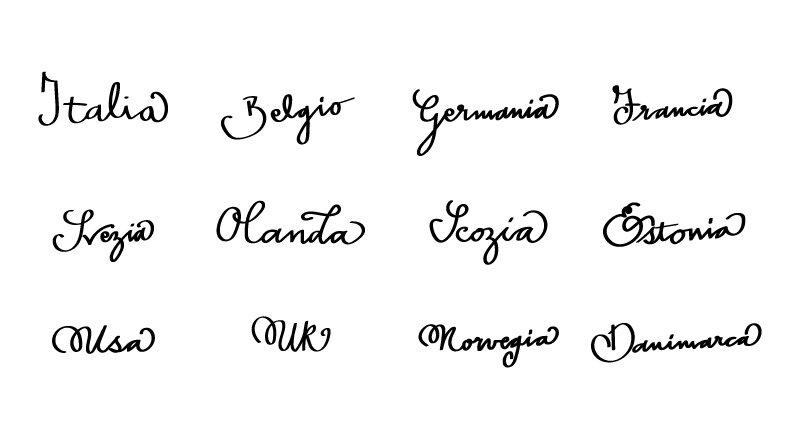 Italia Belgio Germania Francia
Svezia Olanda Scozia Estonia
Usa UK Norvegia Danimarca